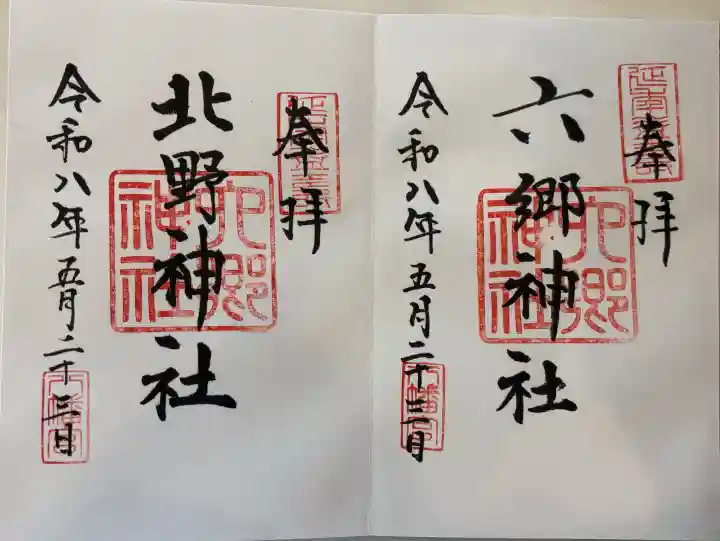 奉拝
六郷神社
令和八年五月二十三日
六郷神社
八幡宮
奉拝
北野神社
令和八年五月二十三日
六郷神社
八幡宮